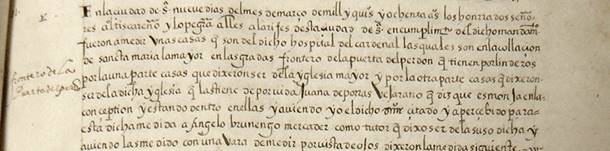 En la ciudad de sª nueve dias del mes de março de mill y quisº y ochenta aºs los honrrados seño-
res al tiscareño y lope alles alarifes desta ciudad de sª en cumplimtº del dicho mandamº
fueron a medir unas casas q son del dicho hospital del cardenal las quales son en la collacion
de sancta maria la mayor en las gradas frontero de la puerta del perdon q tienen por linderos
por la una parte casas que dixeron ser de la yglesia mayor y por la otra parte casas q dixeron-
ser de la dicha yglesia q las tiene de por vida Juana de porras q dis que es monja en la
conception y estando dentro en ellas y aviendo yo el dicho citado y apercebido para
esta dicha medida a Angelo brunengo mercader como tutor q dixo ser de la suso dicha y
aviendolas medido con una vara de medir por vista de ojos dixeron la medida siguiente
frontero de la
puerta del